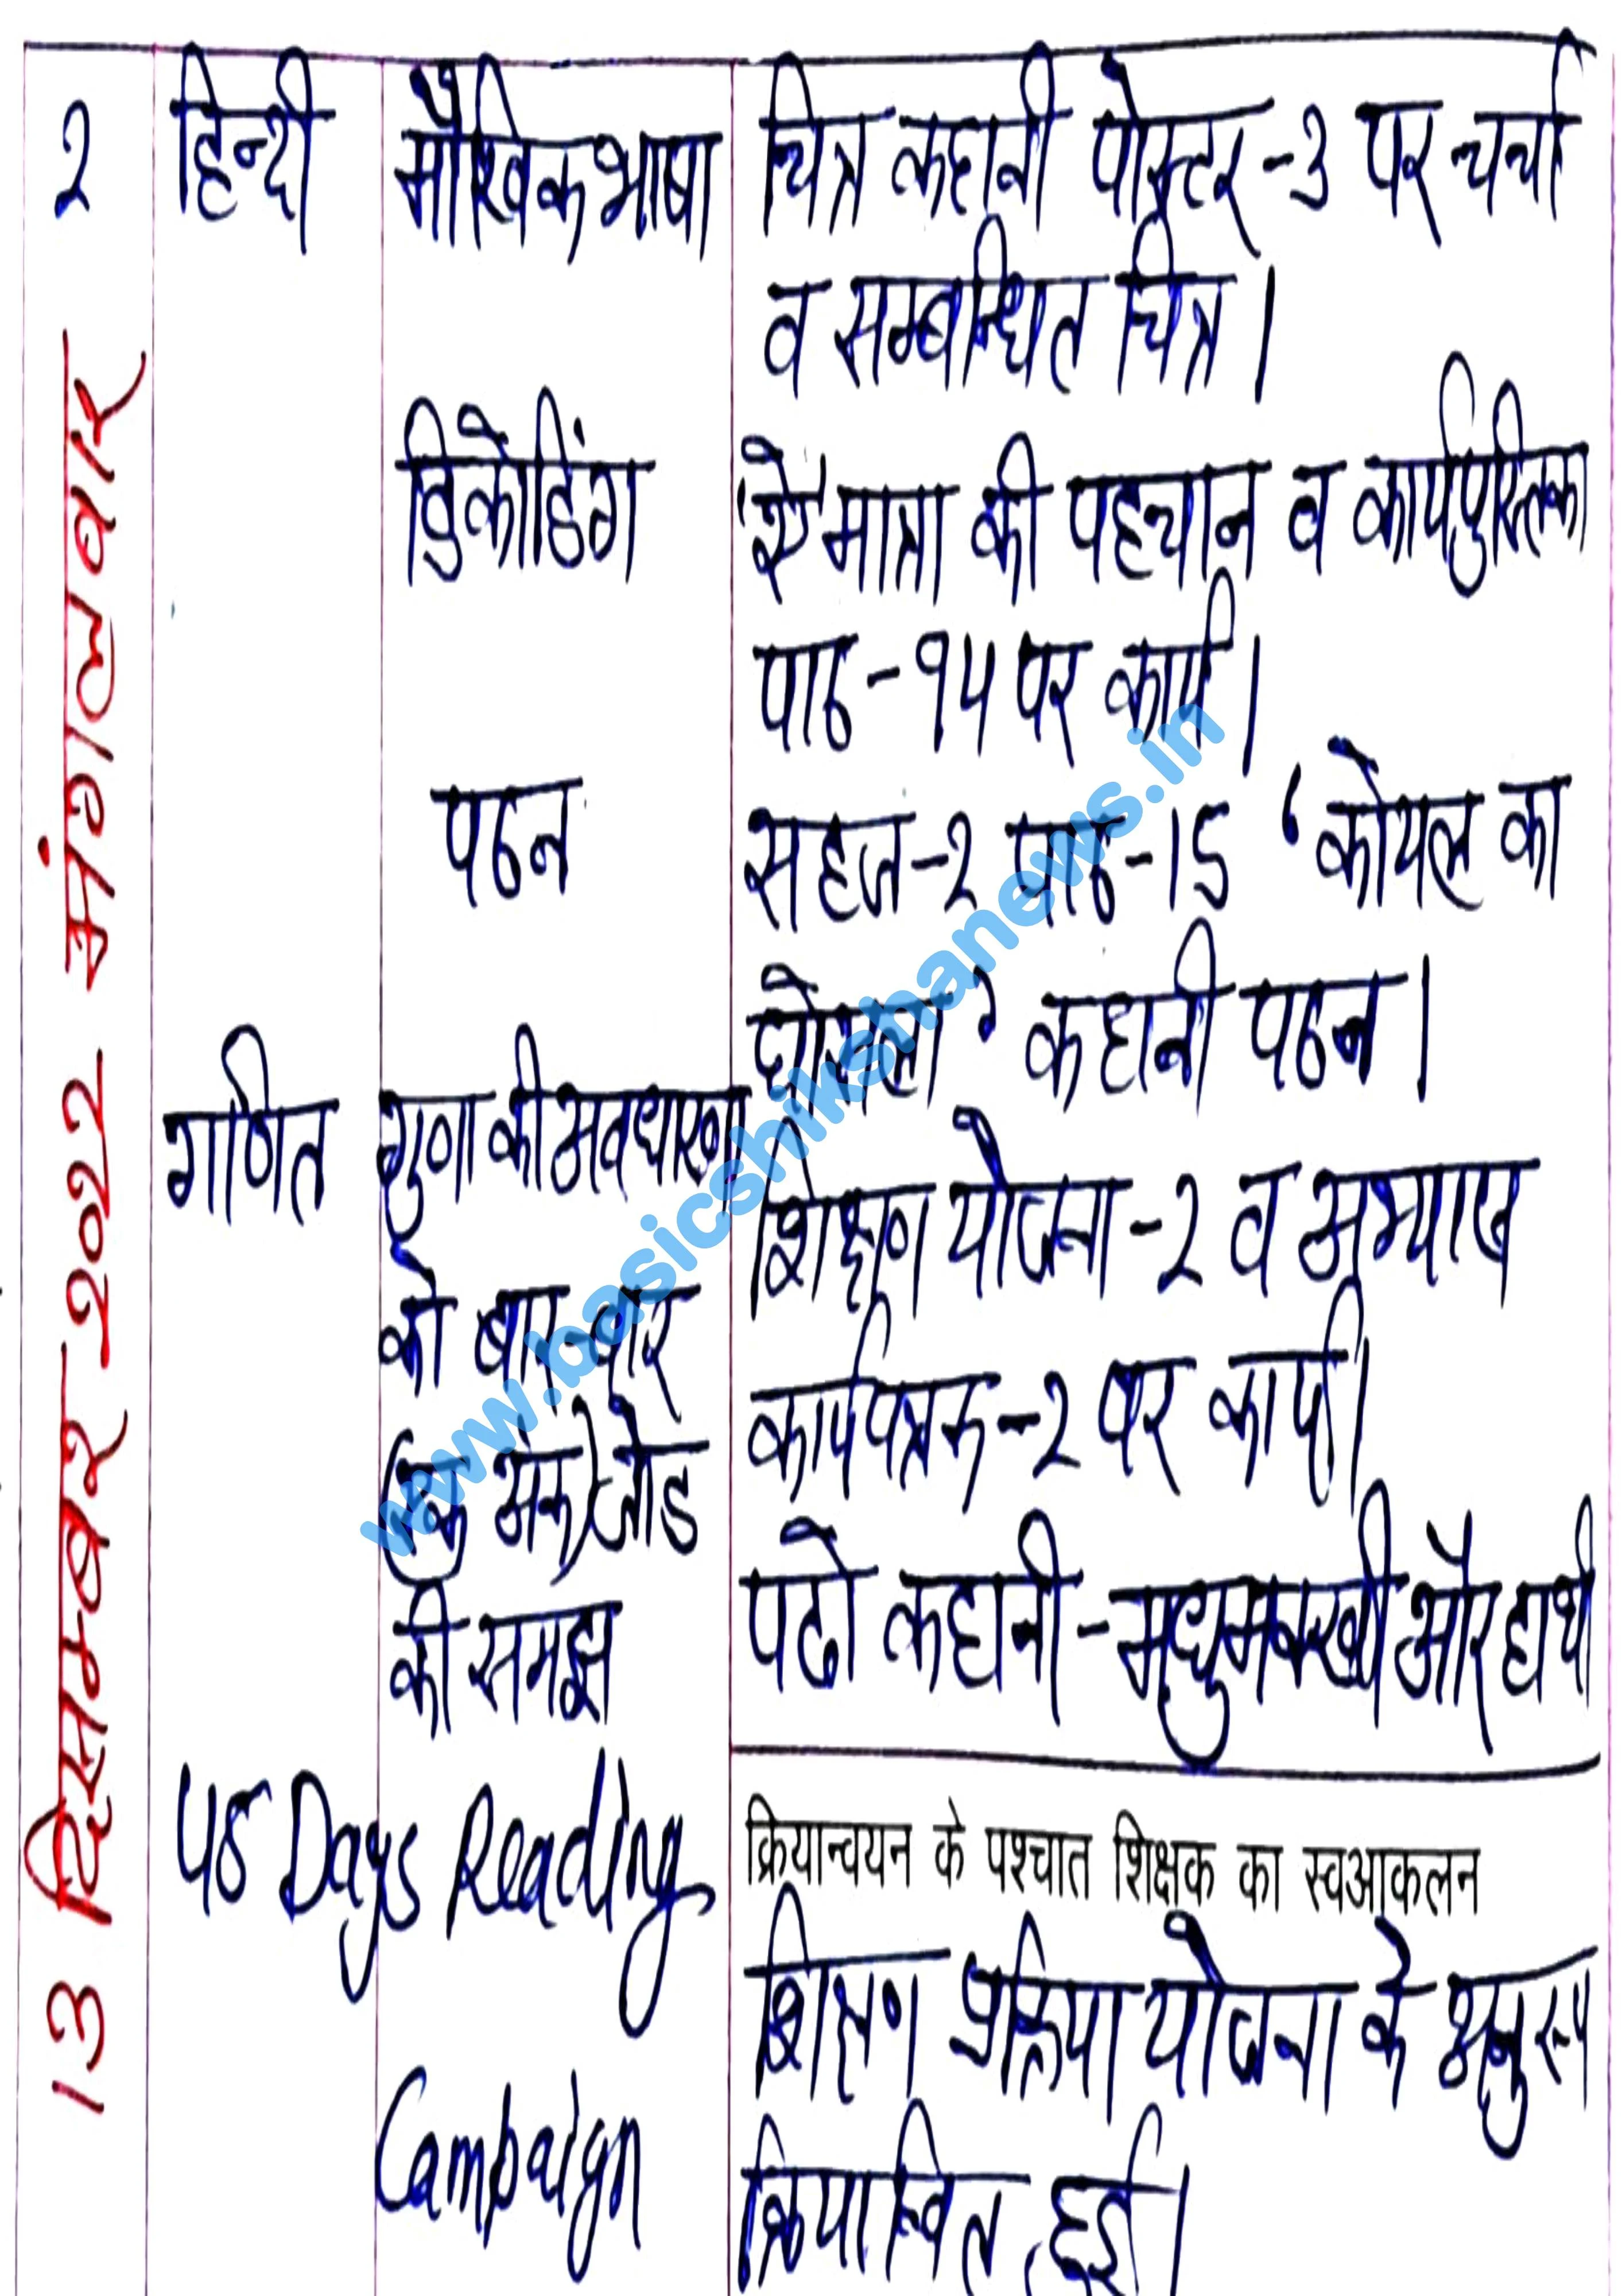 13 दिसम्बर 2022 मंगलवार
२ हिन्दी मौखिक भाषा चित्र कहानी पोस्टर-3 पर चर्चा
व सम्बन्धित चित्र।
डिकोडिंग मात्रा की पहचान व कार्यपुस्तिका
पाठ-१५ पर कार्य।
पठन सहज-२ पाठ-15 'कोयल का
घोसला' कहानी पठन।
गणित गुणा की अवधारणा शिक्षण योजना-२ व अभ्यास
को बार-बार कार्यपत्रक-२ पर कार्य।
(एक अंक) जोड पढो कहानी-मधुमक्खी और हाथी
की समझ
Days Reading क्रियान्वयन के पश्चात शिक्षक का स्वआकलन
शिक्षण प्रक्रिया योजना के अनुरूप
Campaign क्रियान्वित हुई।
www.basicshikshanews.in